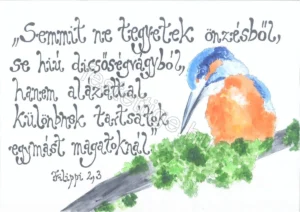 „Semmit ne tegyetek önzésből,
se hiú dicsőségvágyból,
hanem alázattal
különbnek tartsátok
egymást magatoknál."
Filippi 2,3